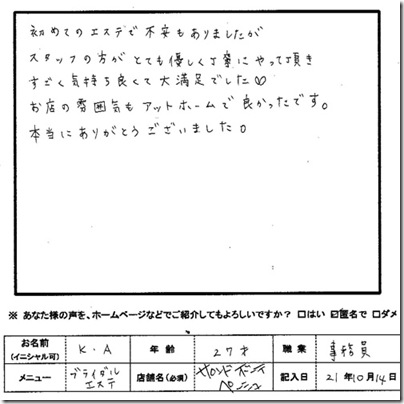 初めてのエステで不安もありましたが
スタッフの方がとても優しく丁寧にやって頂き
すごく気持ち良くて大満足でした♡
お店の雰囲気もアットホームで良かったです。
本当にありがとうございました。
※ あなた様の声を、ホームページなどでご紹介してもよろしいですか? □はい ☑匿名で □ダメ
お名前 (イニシャル可) K・A 年齢 27才 職業 事務員
メニュー ブライダルエステ 店舗名(必須) 記入日 21年10月14日